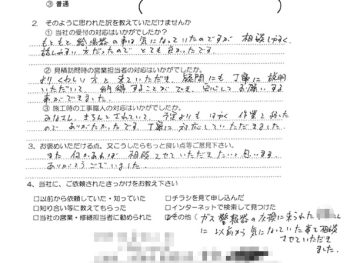 ③ 普通
2. そのように思われた訳を教えていただけませんか
① 当社の受付の対応はいかがでしたか?
もともと給湯器の事は気になっていたのですが 相談しやすく、
話しやすい方だったので とても良かったです。
② 見積訪問時の営業担当者の対応はいかがでしたか。
よりくわしい方と来ていただき 疑問にも丁寧に説明
いただいて、納得することができ、安心してお願いする
事ができました。
③ 施工時の工事職人の対応はいかがでしたか。
みなさん、きちんとされていて、予定よりもはやく作業を行った
ので ありがたかったです、丁寧に対応していただきました。
3. お褒めいただける点、又こうしたらもっと良い点等ご意見下さい
また何かあれば 相談させていただきたいと思います。
ありがとうございました。
4. 当社に、ご依頼されたきっかけをお教え下さい
□以前から依頼していた・知っていた □チラシを見て申し込んだ
□知り合い等に教えてもらった □インターネットで検索して見つけた
□当社の営業・修繕担当者に勧められた その他(ガス警報器の交換に来られた
に以前より気になっていた事を相談
させていただき
ました。